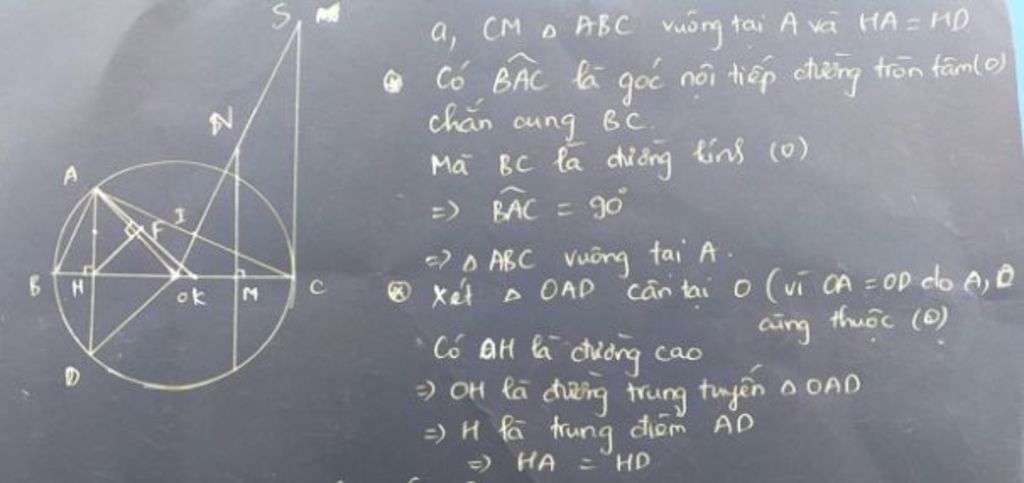 S
N
A
I
F
B
H
O K
M
C
D
a, CM Δ ABC vuông tại A và HA = HD
Có BÂC là góc nội tiếp đường tròn tâm (O)
chắn cung BC.
Mà BC là đường kính (O)
=> BÂC = 90°
=> Δ ABC vuông tại A.
Xét Δ OAD cân tại O (vì OA = OD do A, D
cùng thuộc (O)
Có OH là đường cao
=> OH là đường trung tuyến Δ OAD
=> H là trung điểm AD
=> HA = HD